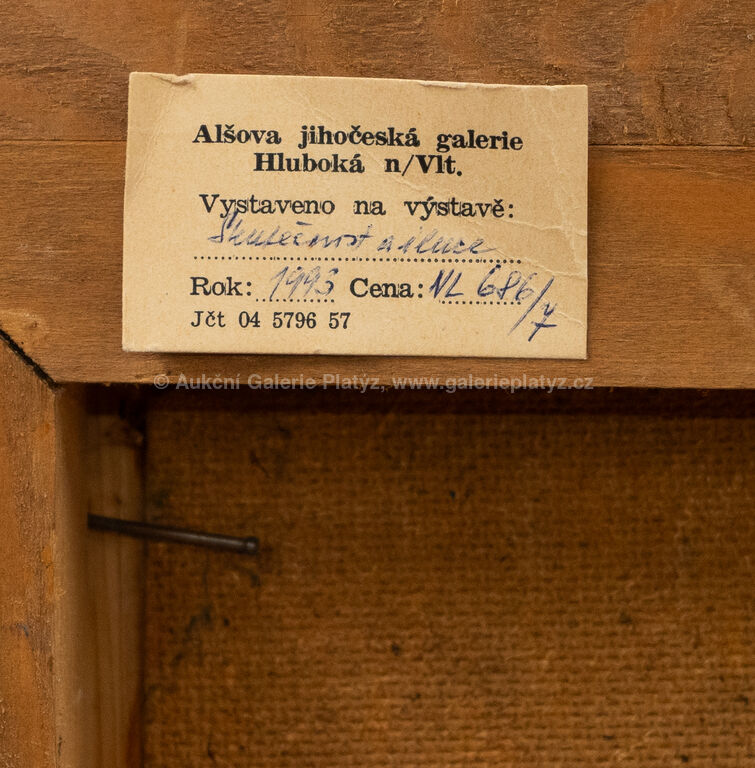 Alšova jihočeská galerie
Hluboká n/Vlt.
Vystaveno na výstavě:
Skutečnost a iluze
Rok: 1993 Cena: NL 686/7
Jčt 04 5796 57
© Aukční Galerie Platýz, www.galerieplatyz.cz